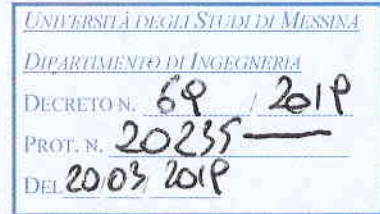 UNIVERSITÀ DEGLI STUDI DI MESSINA
DIPARTIMENTO DI INGEGNERIA
DECRETO N. 69 / 2019
PROT. N. 20235
DEL 20 03 2019